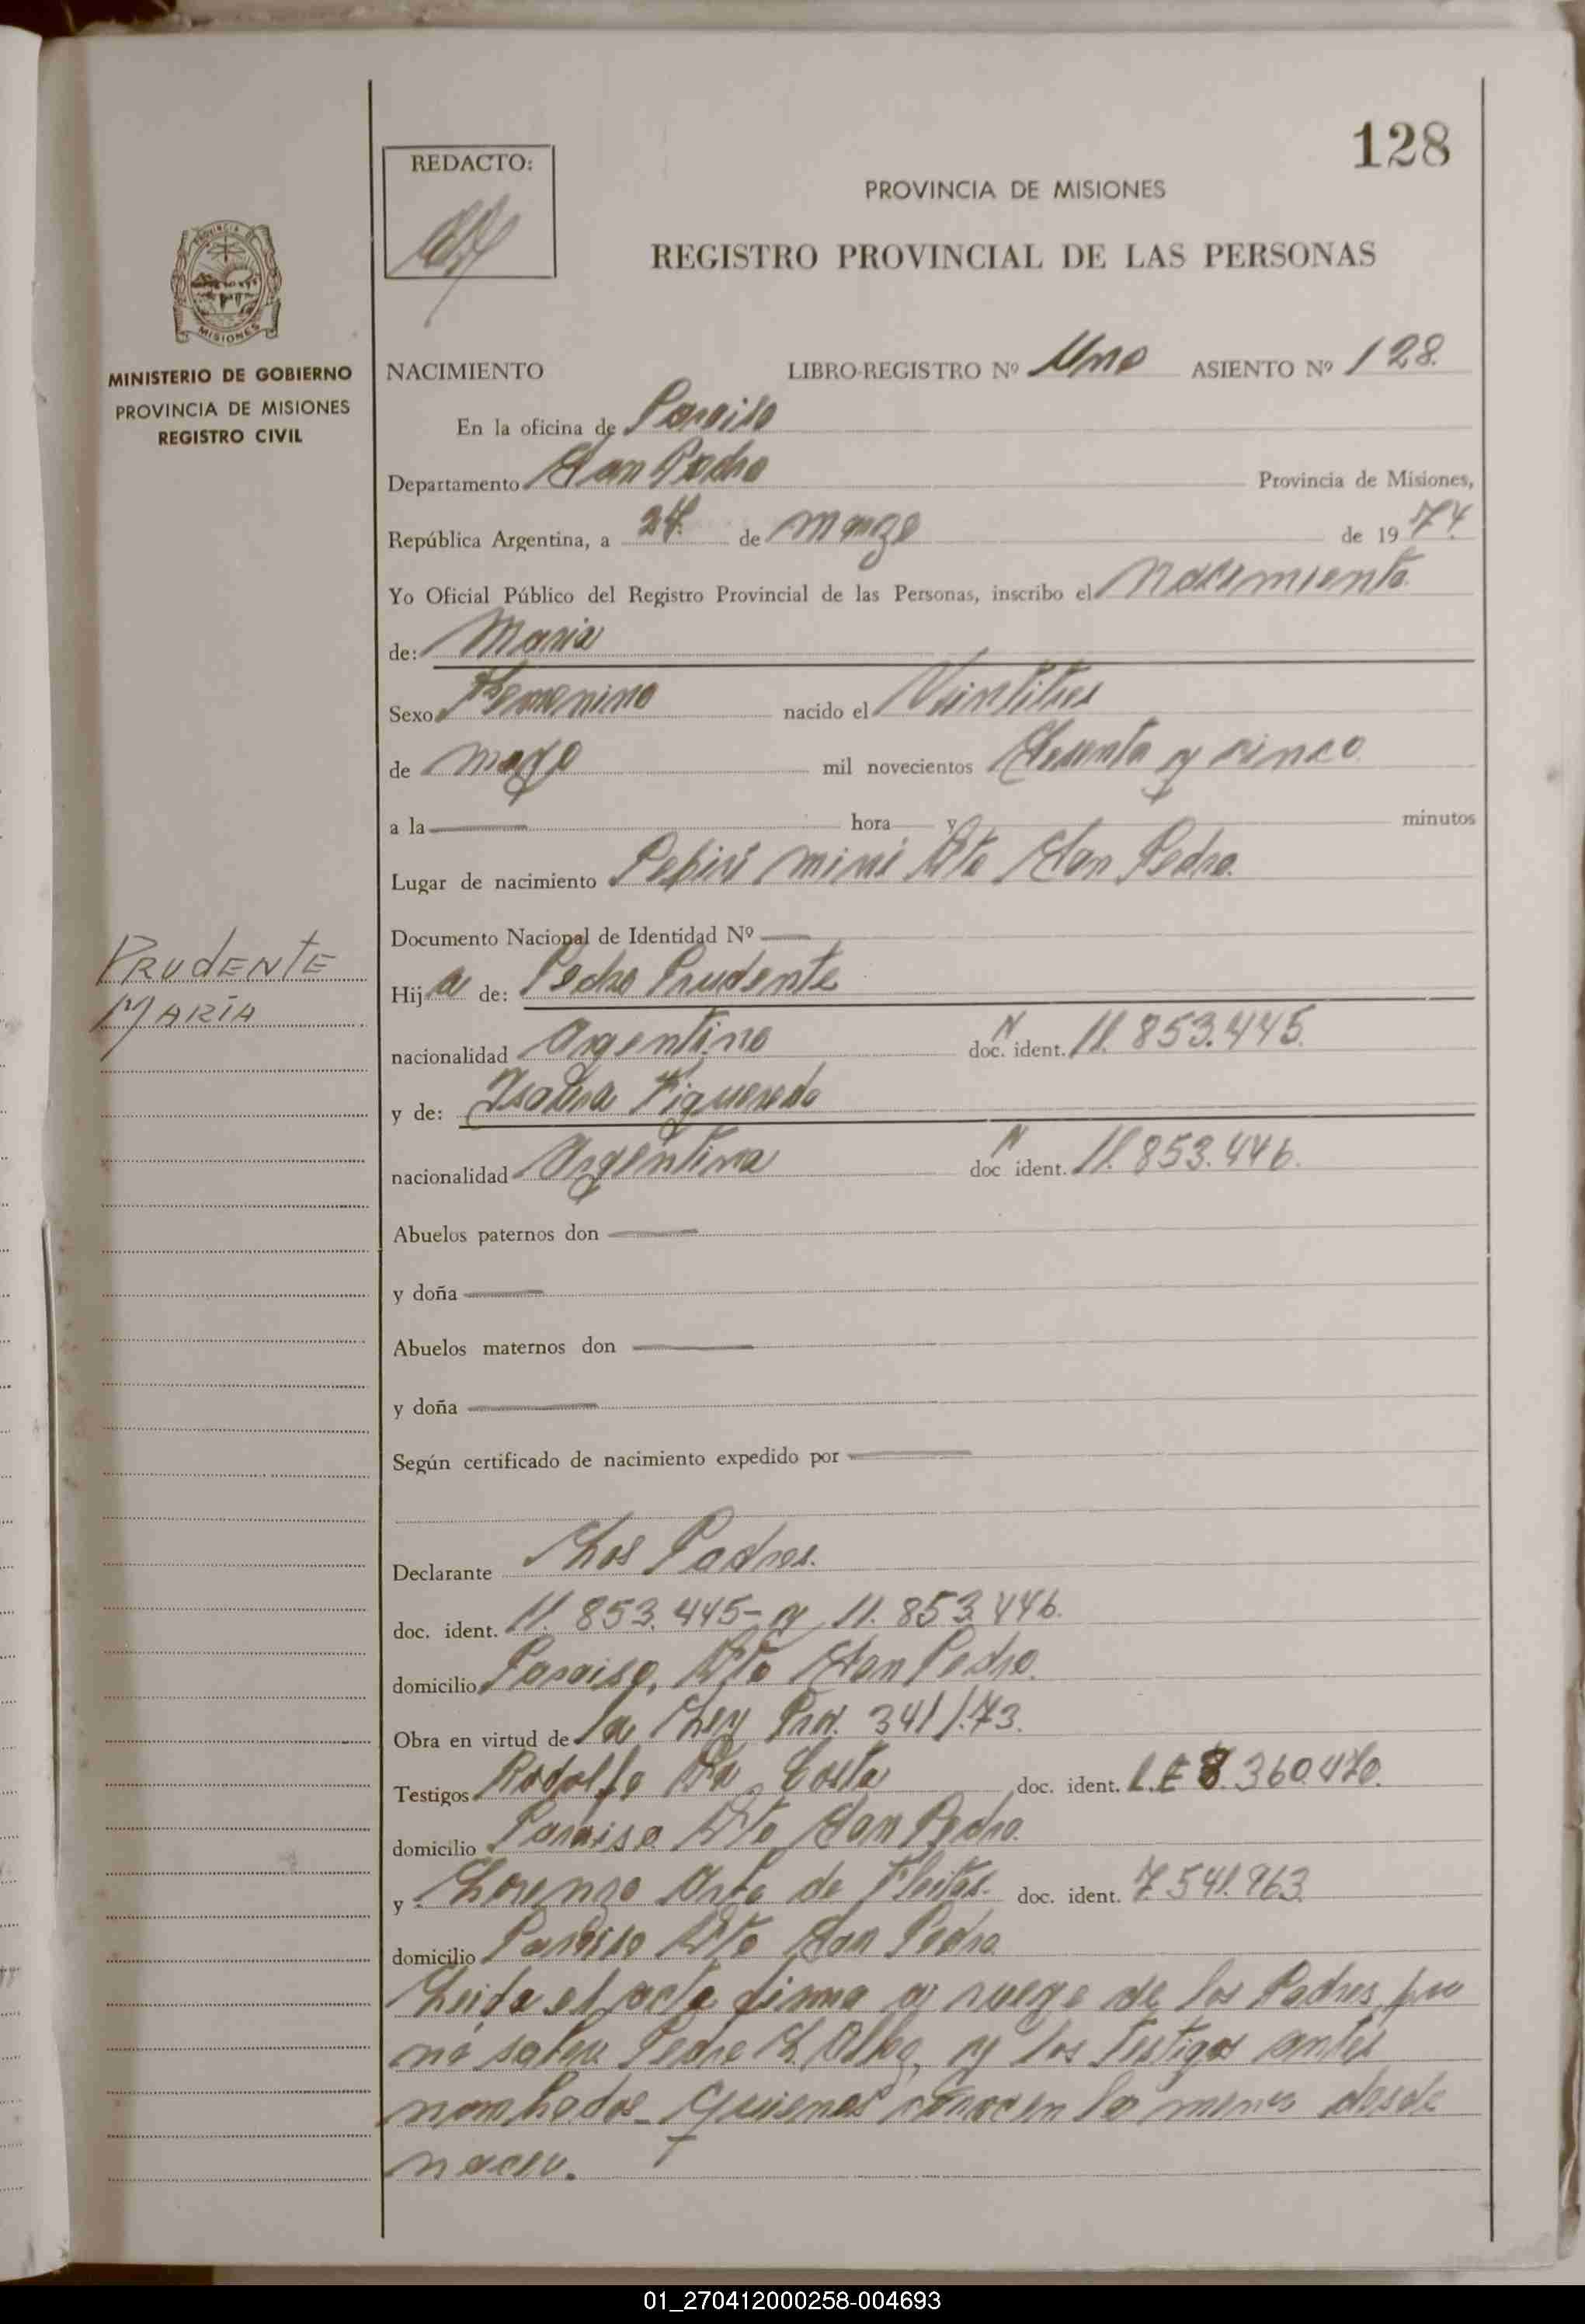 128
REDACTO:
PROVINCIA DE MISIONES
REGISTRO PROVINCIAL DE LAS PERSONAS
PROVINCIA DE
MISIONES
MINISTERIO DE GOBIERNO
PROVINCIA DE MISIONES
REGISTRO CIVIL
NACIMIENTO LIBRO-REGISTRO Nº Uno ASIENTO Nº 128.
En la oficina de Paraiso
Departamento San Pedro Provincia de Misiones,
República Argentina, a 24 de marzo de 1974.
Yo Oficial Público del Registro Provincial de las Personas, inscribo el Nacimiento
de: Maria
Sexo Femenino nacido el Veintitres
de mayo mil novecientos sesenta y cinco
a la hora y minutos
Lugar de nacimiento Pepirí miní Dto San Pedro.
Documento Nacional de Identidad Nº
PRUDENTE
MARÍA
Hija de: Pedro Prudente
nacionalidad Argentino N doc. ident. 11.853.445.
y de: Isolina Figueredo
nacionalidad Argentina N doc ident. 11.853.446.
Abuelos paternos don
y doña
Abuelos maternos don
y doña
Según certificado de nacimiento expedido por
Declarante Los Padres.
doc. ident. 11.853.445- y 11.853.446.
domicilio Paraiso, Dto San Pedro.
Obra en virtud de la Ley Prov. 341/73.
Testigos Rodolfo Da Costa doc. ident. L.E 8.360.470.
domicilio Paraiso Dto San Pedro.
y Lorenzo de Fleitas. doc. ident. 7.541.963.
domicilio Paraiso Dto San Pedro
Leida el acta firma a ruego de los Padres por
no saber Pedro y los testigos antes
nombrados quienes conocen la menor desde
nacer.
01_270412000258-004693